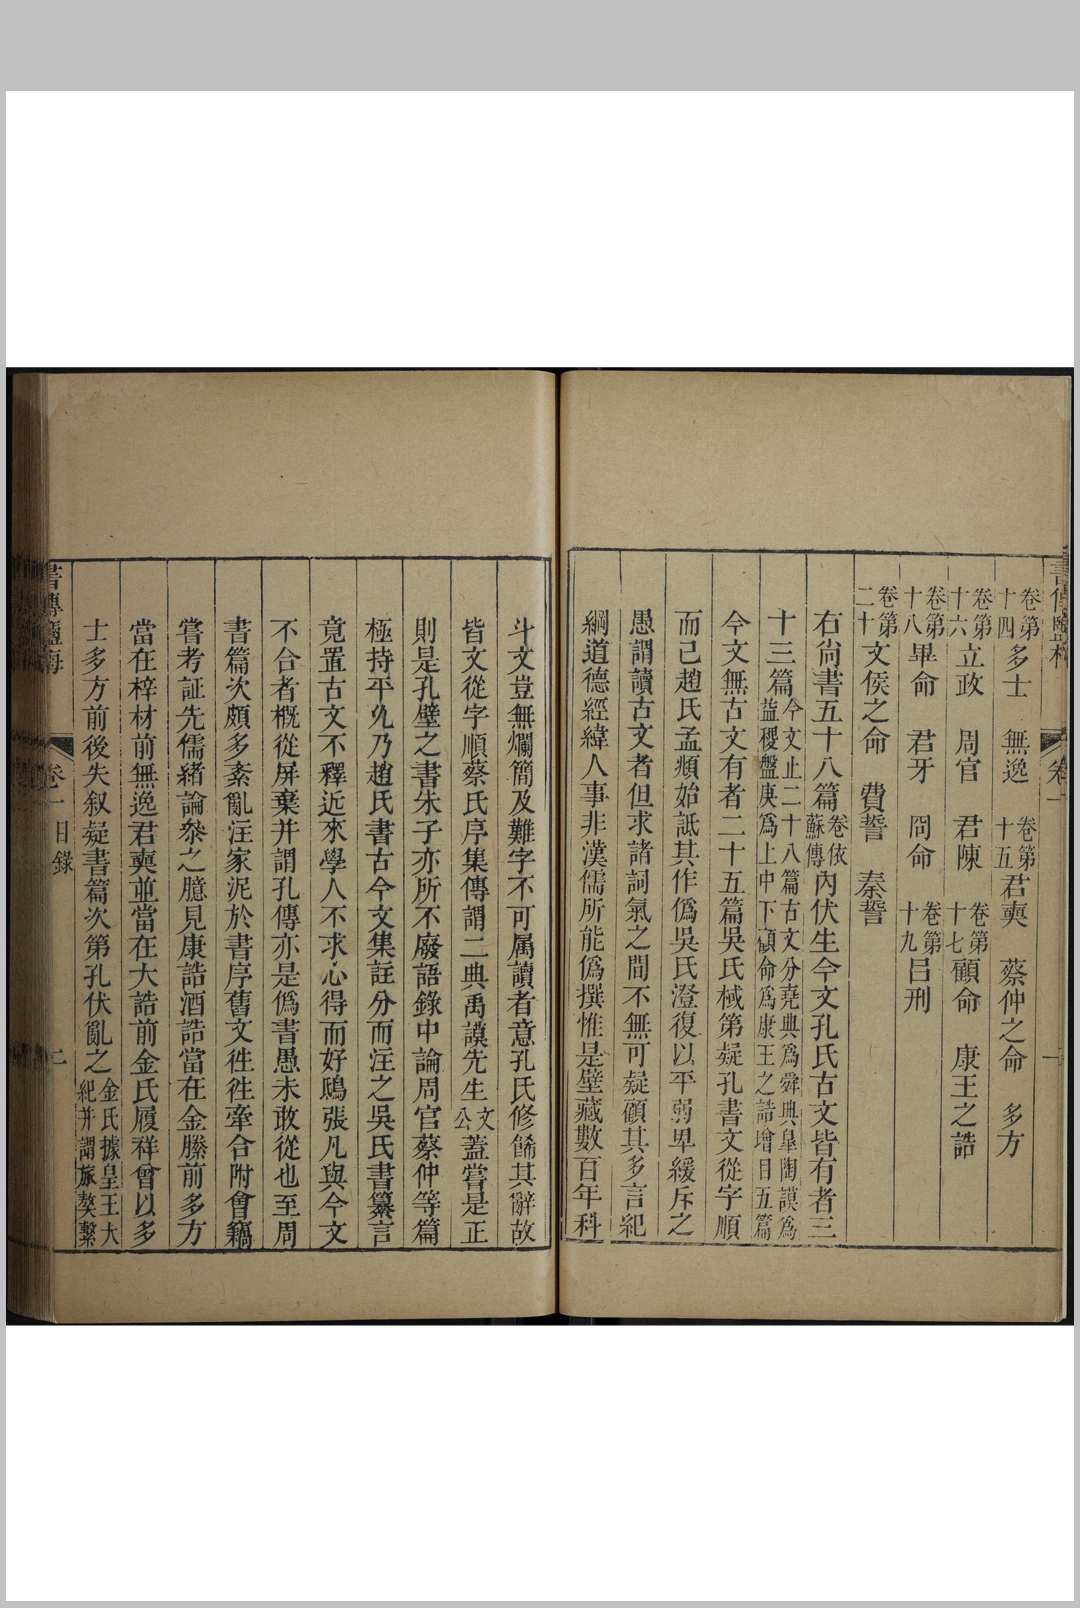 卷第十四多士　無逸　卷第十五君奭　蔡仲之命　多方
卷第十六立政　周官　君陳　卷第十七顧命　康王之誥
卷第十八畢命　君牙　冏命　卷第十九呂刑
卷第二十文侯之命　費誓　秦誓
右尚書五十八篇卷依蘇傳內伏生今文孔氏古文皆有者三
十三篇今文止二十八篇古文分堯典爲舜典臯陶謨爲益稷盤庚爲上中下顧命爲康王之誥增目五篇
今文無古文有者二十五篇吳氏棫第疑孔書文從字順
而已趙氏孟頫始詆其作僞吳氏澄復以平弱卑緩斥之
愚謂讀古文者但求諸詞氣之間不無可疑顧其多言紀
綱道德經緯人事非漢儒所能僞撰惟是壁藏數百年科
斗文豈無爛簡及難字不可属讀者意孔氏修餙其辭故
皆文從字順蔡氏序集傳謂二典禹謨先生文公蓋嘗是正
則是孔壁之書朱子亦所不廢語錄中論周官蔡仲等篇
極持平允乃趙氏書古今文集註分而注之吳氏書纂言
竟置古文不釋近來學人不求心得而好鴟張凡與今文
不合者概從屏棄并謂孔傳亦是僞書愚未敢從也至周
書篇次頗多紊亂注家泥於書序舊文徃徃牽合附會竊
嘗考証先儒緒論叅之臆見康誥酒誥當在金縢前多方
當在梓材前無逸君奭並當在大誥前金氏履祥曾以多
士多方前後失叙疑書篇次第孔伏亂之金氏據皇王大紀并謂旅獒繫
卷一目錄
二